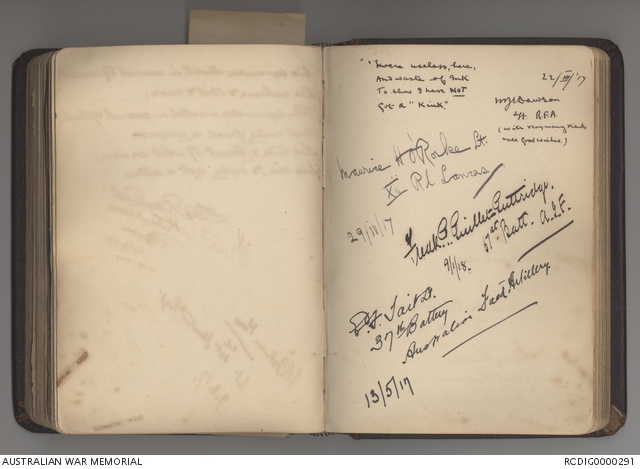 "'Twere useless, here,
And waste of Ink
To show I have NOT
Got a "Kink."
22/III/'17
Dawson
Lt. R.F.A.
(with very many thanks
and good wishes.)
Maurice H O'Rorke Lt.
XII Rl Lancers
29/IV/17
Fredk B. Guttridge.
57th Batt. A.I.F.
9/1/18.
Tait Lt.
37th Battery
Australian Field Artillery
13/5/17
AUSTRALIAN WAR MEMORIAL
RCDIG0000291